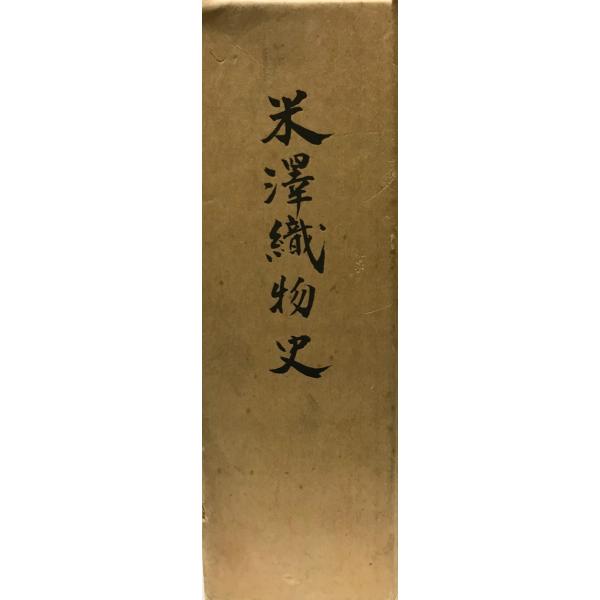 米澤織物史